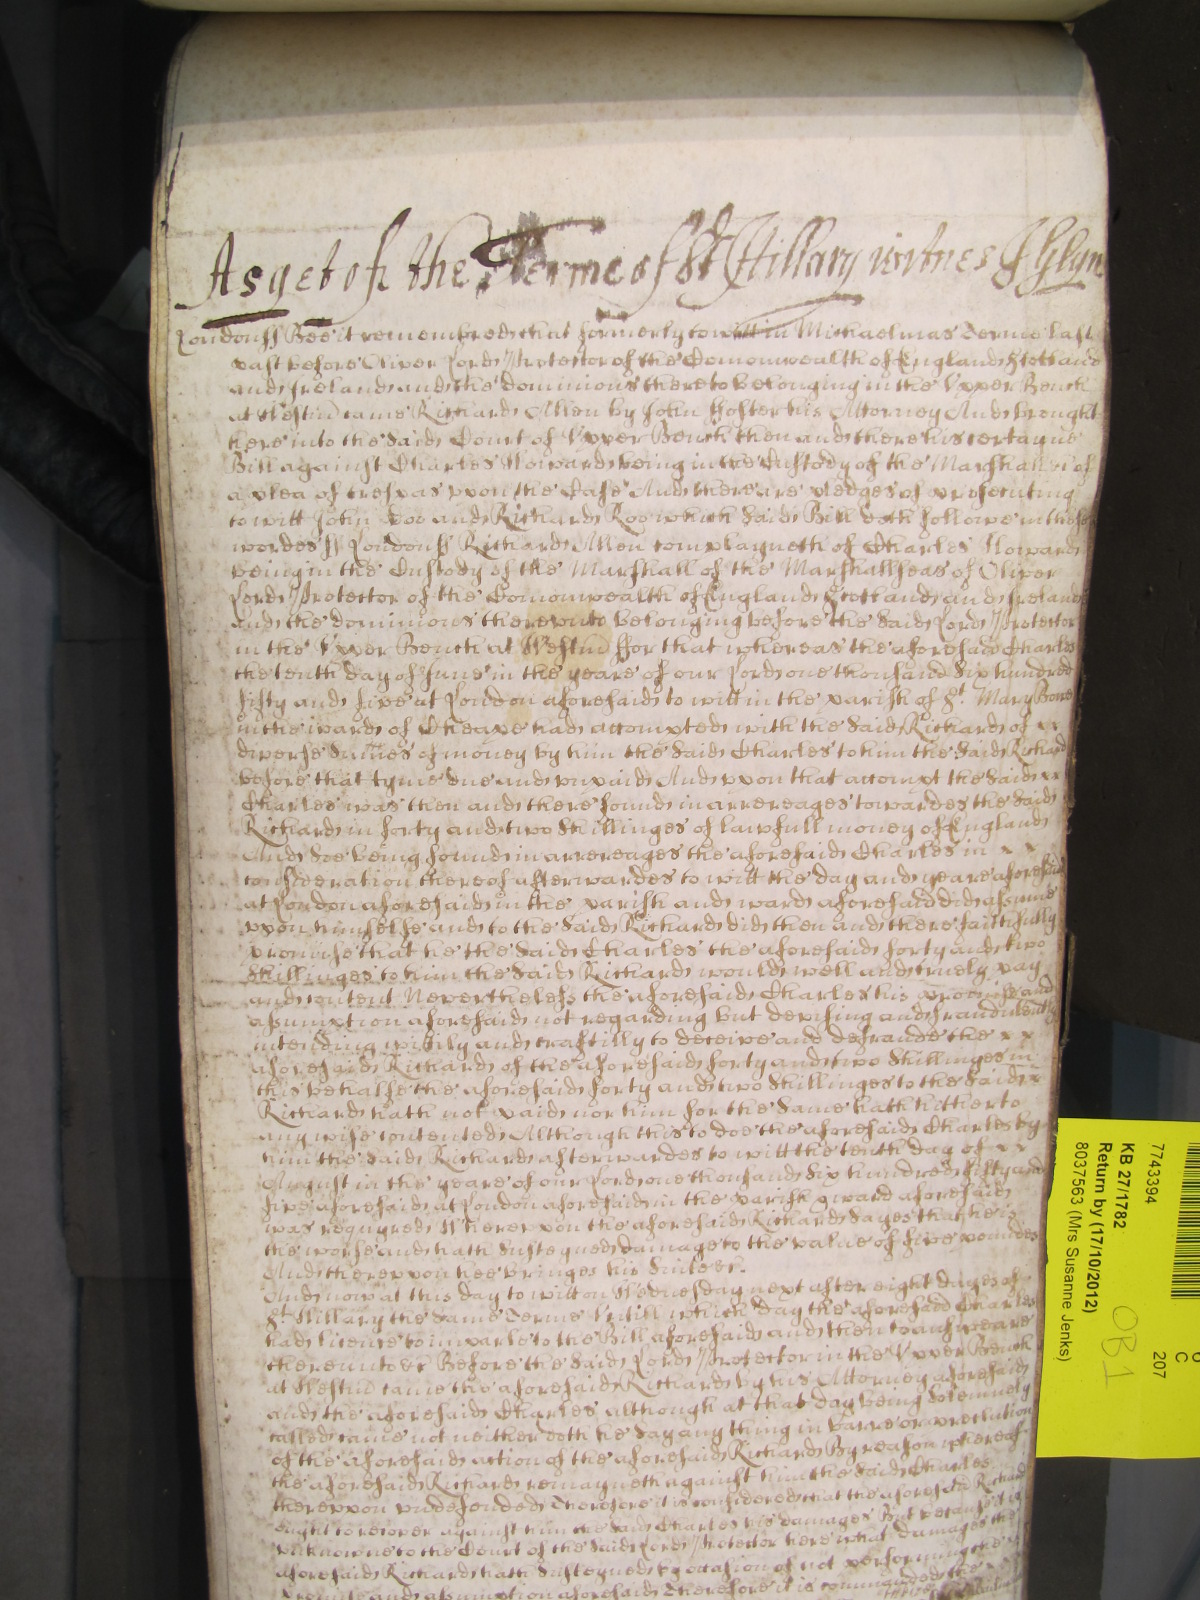 As yet of the Terme of St Hillary witnes J Glyn
Londonss Bee it remembred that formerly to witt in Michaelmas Terme last
past before Oliver Lord Protector of the Comonwealth of England Scotland
and Ireland and the dominions thereto belonging in the Upper Bench
at Westm came Richard Allen by John Foster his Attorney And brought
here into the said Court of Upper Bench then and there his certayne
Bill against Charles Howard being in the Custody of the Marshall &c of
a plea of trespas upon the Case And there are pledges of prosecuting
to witt John Doo and Richard Roo which said Bill doth followe in these
wordes ss Londonss Richard Allen complayneth of Charles Howard
being in the Custody of the Marshall of the Marshallseas of Oliver
Lord Protector of the Comonwealth of England Scotland and Ireland
and the dominions thereunto belonging before the said Lord Protector
in the Upper Bench at Westm ffor that whereas the aforesaid Charles
the tenth day of June in the yeare of our Lord one thousand six hundred
fifty and five at London aforesaid to witt in the parish of St. Mary Bowe
in the ward of Cheape had accompted with the said Richard of xx
diverse sumes of money by him the said Charles to him the said Richard
before that tyme due and unpaid And upon that accompt the said xx
Charles was then and there found in arrerages towardes the said
Richard in forty and two shillinges of lawfull money of England
And soe being found in arrerages the aforesaid Charles in x x
consideration thereof afterwardes to witt the day and yeare aforesaid
at London aforesaid in the parish and ward aforesaid did assume
upon himselfe and to the said Richard did then and there faithfully
promise that he the said Charles the aforesaid forty and two
shillinges to him the said Richard would well and truely pay
and content Neverthelesse the aforesaid Charles his promise and
assumption aforesaid not regarding but devising and fraudulently
intending wittily and craftilly to deceive and defraude the x x
aforesaid Richard of the aforesaid forty and two shillinges in
this behalfe the aforesaid forty and two shillinges to the said x
Richard hath not paid nor him for the same hath hitherto
any wise contented Although this to doe the aforesaid Charles by
him the said Richard afterwardes to witt the tenth day of x x
August in the yeare of our Lord one thousand six hundred fifty and
five aforesaid at London aforesaid in the parish & ward aforesaid
was requyred Whereupon the aforesaid Richard sayes that he is
the worse and hath susteyned damage to the value of five poundes
And thereupon hee bringes his suite &c.
And now at this day to witt on Wednesday next after eight dayes of
St. Hillary the same Terme Untill which day the aforesaid Charles
had licence to imparle to the Bill aforesaid and then to answeare
thereunto &c Before the said Lord Protector in the Upper Bench
at Westm came the aforesaid Richard by his Attorney aforesaid
and the aforesaid Charles although at that day being solemnely
called came not neither doth he say any thing in barre or preclusion
of the aforesaid action of the aforesaid Richard By reason whereof
the aforesaid Richard remayneth against him the said Charles
thereupon undefended Therefore it is considered that the aforesaid Richard
ought to recover against him the said Charles his damages But because it is
unknowne to the Court of the said Lord Protector here what damages the
aforesaid Richard hath susteyned by occasion of not performing the x x
promise and assumption aforesaid Therefore it is commanded the
7743394
KB 27/1782
Return by (17/10/2012)
8037563 (Mrs Susanne Jenks)
C
207
OB1